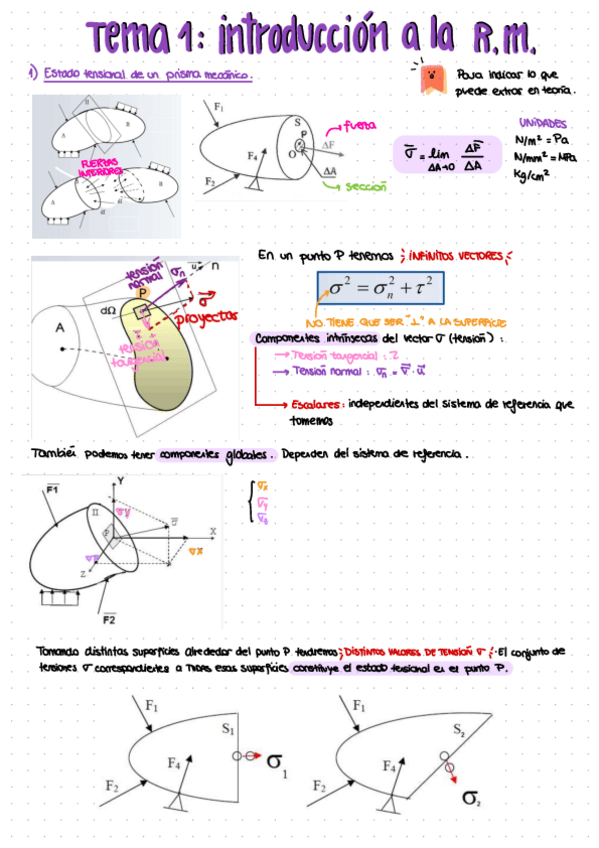 Tema 1: introducción a la R.M.
1) Estado tensional de un prisma mecánico.
Para indicar lo que
puede entrar en teoría.
B
A
FUERZAS
INTERIORES
A
B
F₁
S
P
fuerza
ΔF
O
F₄
ΔA
F₂
sección
σ = lim ΔF / ΔA
ΔA→0
UNIDADES
N/m² = Pa
N/mm² = MPa
Kg/cm²
En un punto P tenemos ¡INFINITOS VECTORES!
tensión
normal
σn
u
n
P
σ
dΩ
proyectas
A
tensión
tangencial
σ² = σn² + τ²
NO TIENE QUE SER "⊥" A LA SUPERFICIE
Componentes intrínsecas del vector σ (tensión):
→ Tensión tangencial: τ
→ Tensión normal: σn = σ · u
→ Escalares: independientes del sistema de referencia que
tomemos
También podemos tener componentes globales. Dependen del sistema de referencia.
F1
Y
Π
σy
σ
P
X
σx
Z
F2
σx
σy
σz
Tomando distintas superficies alrededor del punto P tendremos ¡DISTINTOS VALORES DE TENSIÓN σ! El conjunto de
tensiones σ correspondientes a TODAS esas superficies constituye el estado tensional en el punto P.
F₁
S₁
F₄
σ₁
F₂
F₁
S₂
F₄
F₂
σ₂